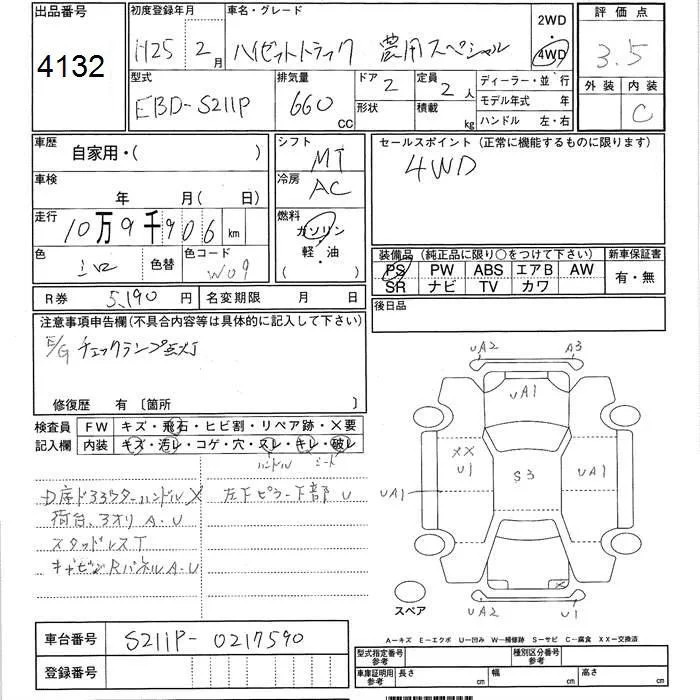 出品番号 4132
初度登録年月 H25 2月
車名・グレード ハイゼットトラック 農用スペシャル
2WD・4WD
評価点 3.5
外装 内装 C
型式 EBD-S211P
排気量 660 CC
ドア 2 形状
定員 2人 積載 kg
ディーラー・並行
モデル年式 年
ハンドル 左・右
車歴 自家用・( )
シフト MT
セールスポイント(正常に機能するものに限ります)
4WD
車検 年 月( 日)
冷房 AC
走行 10万9千906 km
燃料 ガソリン 軽・油 ( )
色 シロ 色替 色コード W09
装備品 (純正品に限り○をつけて下さい) 新車保証書
PS PW ABS エアB AW 有・無
SR ナビ TV カワ
R券 5,190円 名変期限 月 日
後日品
注意事項申告欄(不具合内容等は具体的に記入して下さい)
E/G チェックランプ点灯
修復歴 有 〔箇所 〕
検査員 FW キズ・飛石・ヒビ割・リペア跡・X要
記入欄 内装 キズ・汚レ・コゲ・穴・スレ・キレ・破レ
ハンドル シート
左下ピラー下部 U
荷台、アオリ A.U
スタッドレスT
キャビンRパネル A.U
UA2 A3
UA1
XX U1 S3 UA1
UA1
X
UA2 U1
スペア
A-キズ E-エクボ U-凹み W-補修跡 S-サビ C-腐食 XX-交換済
車台番号 S211P-0217590
登録番号
型式指定番号 参考 種別区分番号 参考
車庫証明用 参考 長さ cm 幅 cm 高さ cm